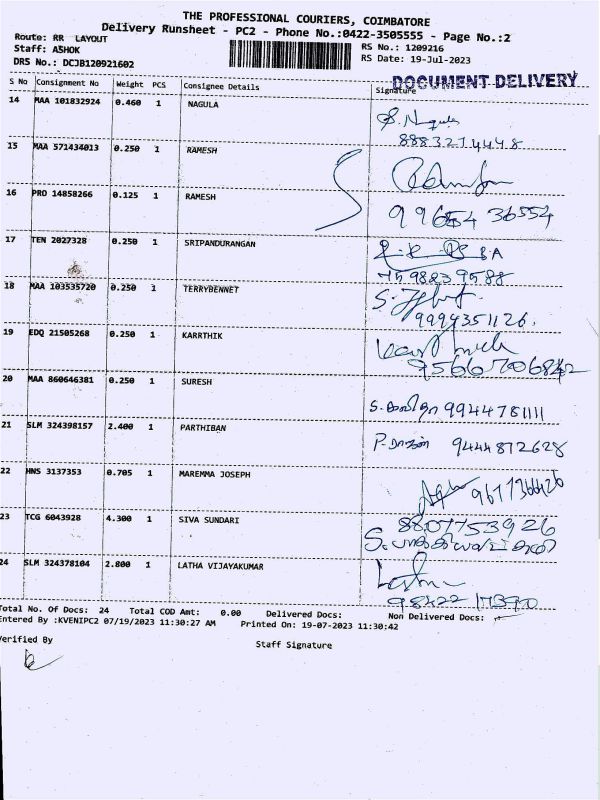 THE PROFESSIONAL COURIERS, COIMBATORE
Delivery Runsheet - PC2 - Phone No.:0422-3505555 - Page No.:2
Route: RR LAYOUT
Staff: ASHOK
DRS No.: DCJB120921602
RS No.: 1209216
RS Date: 19-Jul-2023
DOCUMENT DELIVERY
S No Consignment No Weight PCS Consignee Details Signature
14 MAA 101832924 0.460 1 NAGULA
8883274448
15 MAA 571434013 0.250 1 RAMESH
16 PRO 14858266 0.125 1 RAMESH
17 TEN 2027328 0.250 1 SRIPANDURANGAN
18 MAA 103535720 0.250 1 TERRYBENNET
9994351126.
19 EDQ 21505268 0.250 1 KARRTHIK
20 MAA 860646381 0.250 1 SURESH
9944781111
21 SLM 324398157 2.400 1 PARTHIBAN
9444872628
22 HNS 3137353 0.705 1 MAREMMA JOSEPH
23 TCG 6043928 4.300 1 SIVA SUNDARI
8807753926
24 SLM 324378104 2.800 1 LATHA VIJAYAKUMAR
Total No. Of Docs: 24 Total COD Amt: 0.00 Delivered Docs: Non Delivered Docs:
Entered By :KVENIPC2 07/19/2023 11:30:27 AM Printed On: 19-07-2023 11:30:42
Verified By
Staff Signature